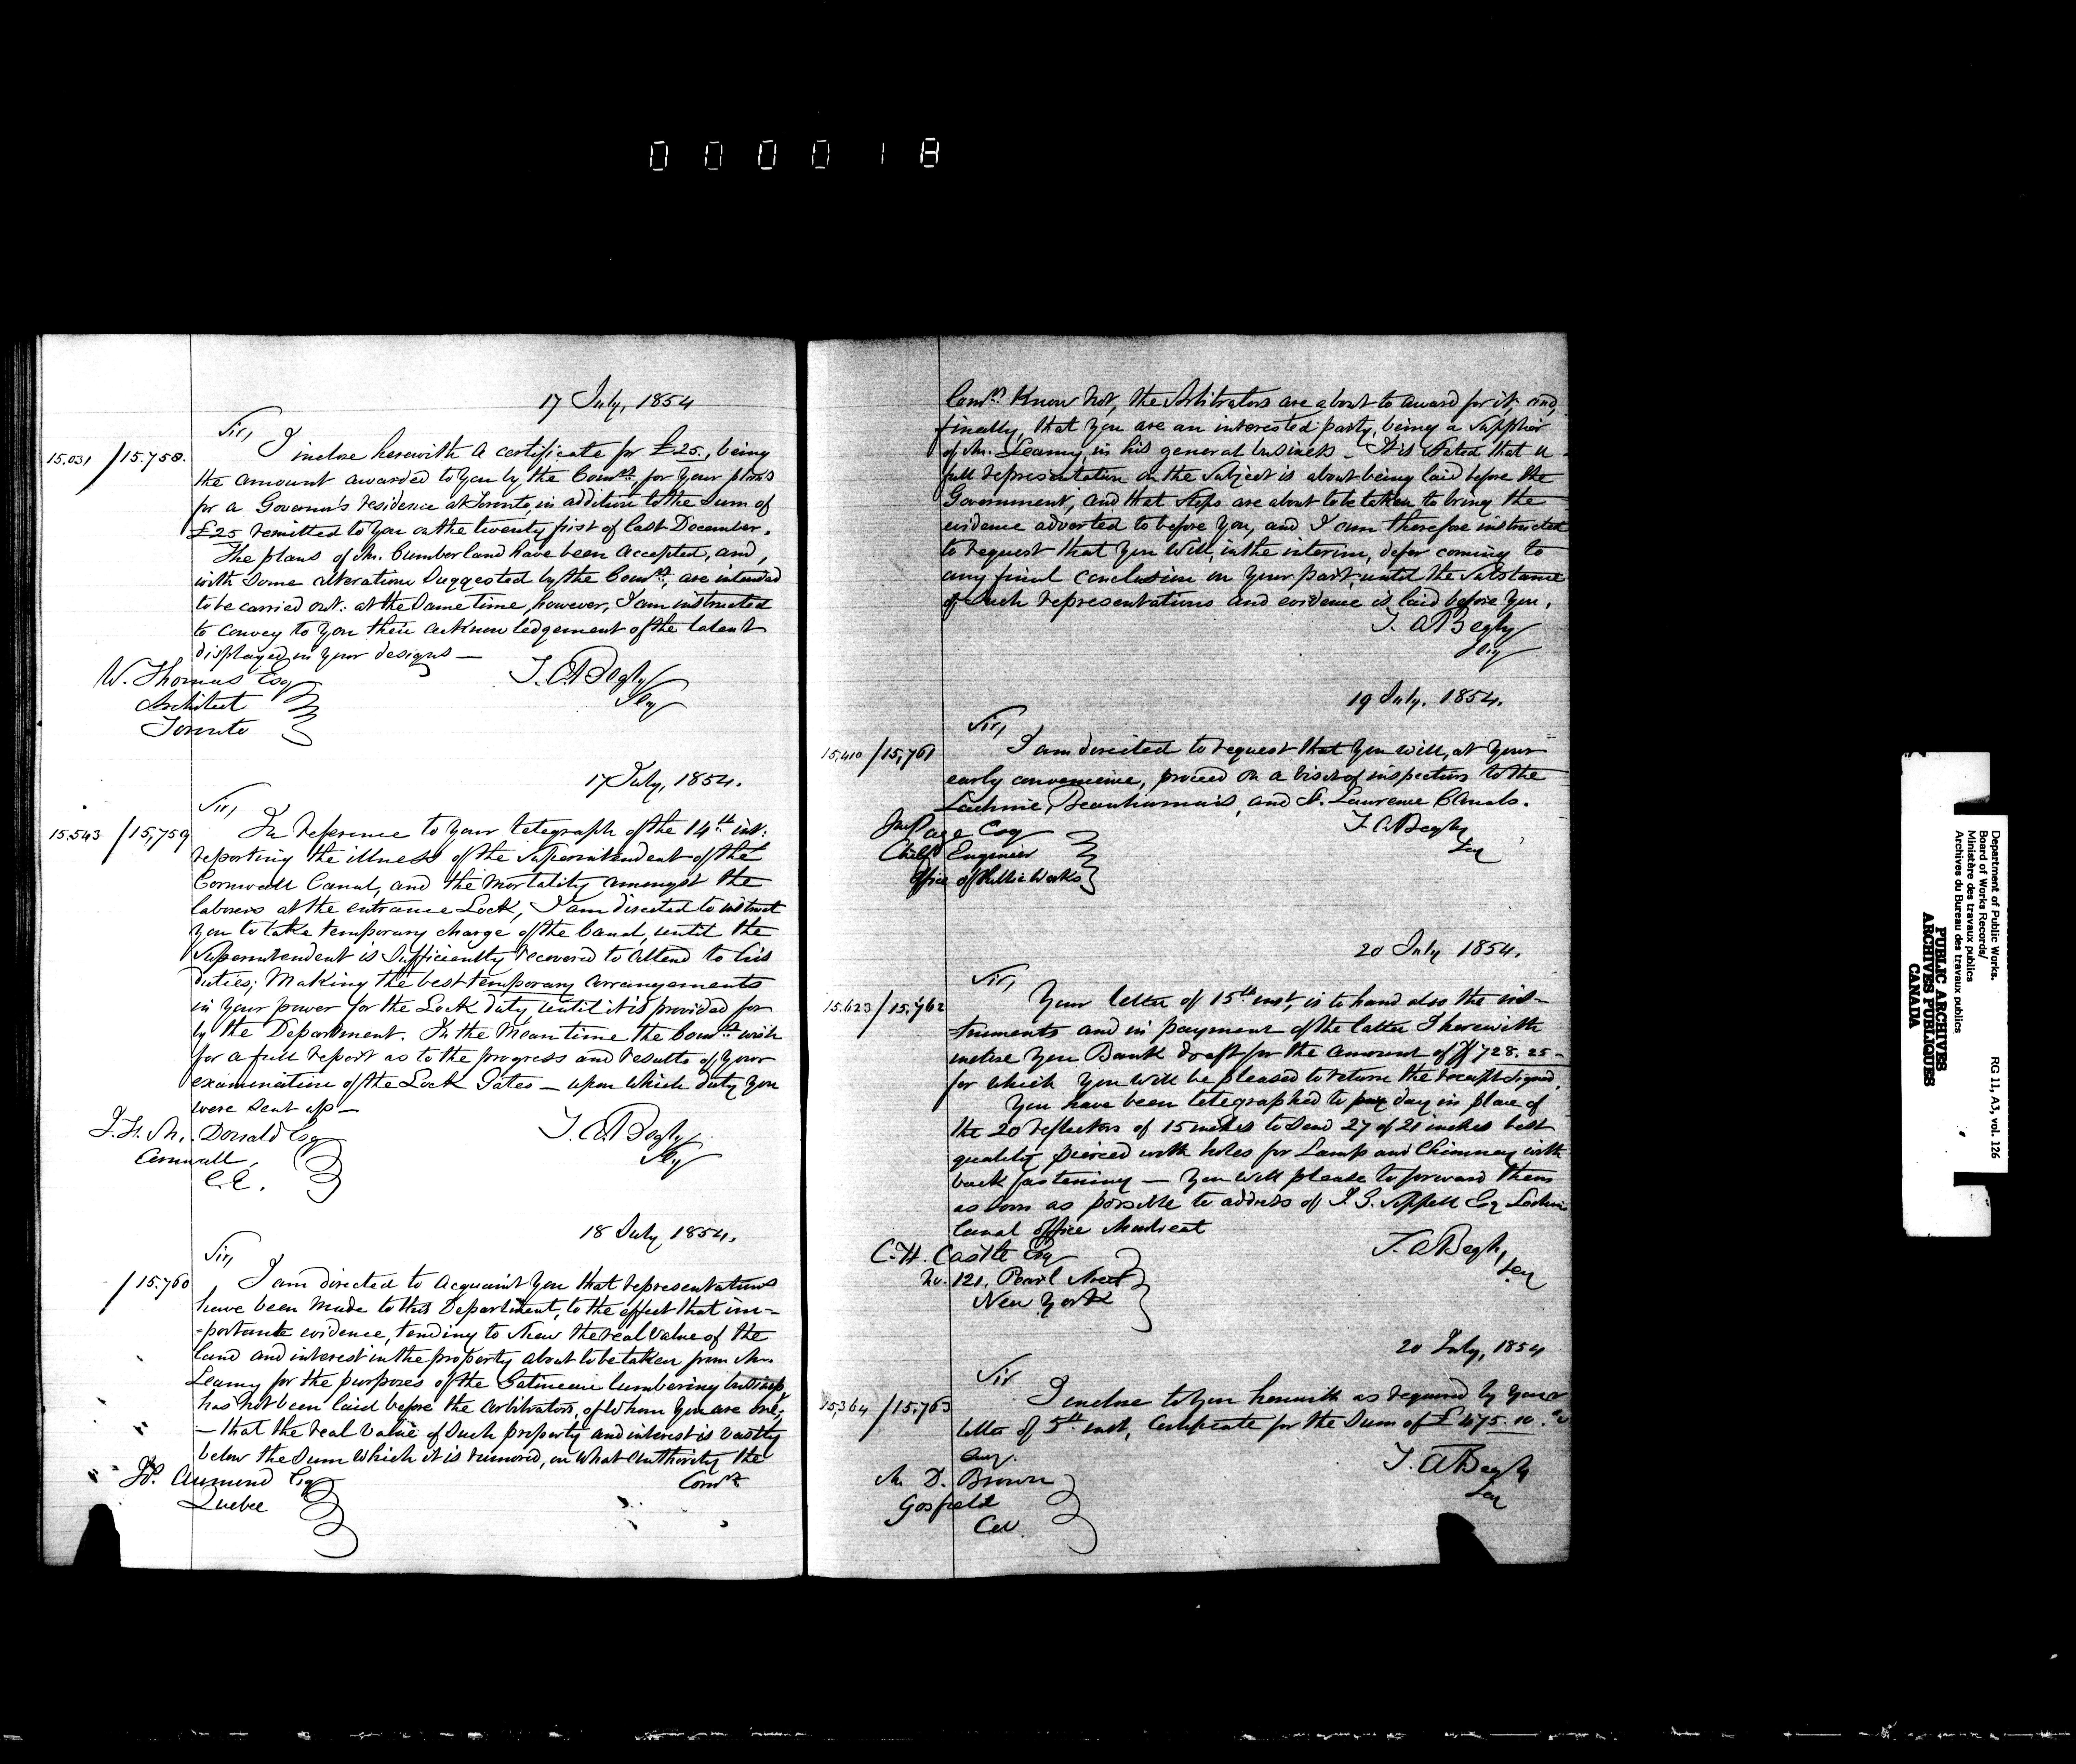 000018
17 July, 1854
Sir,
15.031 / 15.758. I inclose herewith a certificate for £25., being
the amount awarded to you by the Comrs. for your plans
for a Governor's residence at Toronto, in addition to the sum of
£25 remitted to you on the twenty first of last December.
The plans of Mr. Cumberland have been accepted, and,
with some alterations suggested by the Comrs., are intended
to be carried out: at the same time, however, I am instructed
to convey to you their acknowledgement of the talent
displayed in your designs —
T. A. Begly
Secy
W. Thomas Esq
Architect
Toronto
17 July, 1854.
Sir,
15.543 / 15,759 In reference to your telegraph of the 14th inst:
reporting the illness of the Superintendent of the
Cornwall Canal, and the mortality amongst the
laborers at the entrance Lock, I am directed to instruct
you to take temporary charge of the Canal, until the
Superintendent is sufficiently recovered to attend to his
duties; making the best temporary arrangements
in your power for the Lock duty, until it is provided for
by the Department. In the mean time the Comrs. wish
for a full report as to the progress and results of your
examination of the Lock Gates — upon which duty you
were sent up —
T. A. Begly
Secy
Donald Esq
Cornwall,
18 July, 1854.
Sir,
/ 15.760 I am directed to acquaint you that representations
have been made to this Department, to the effect that im-
-portante evidence, tending to shew the real value of the
land and interest in the property about to be taken from Mr.
Leamy for the purposes of the Gatineau lumbering business
has not been laid before the arbitrators, of whom you are one;
— that the real value of such property and interest is vastly
below the sum which it is rumored, on what authority the
Comrs.
Aumond Esq
Quebec
Comrs. know not, the Arbitrators are about to award for it, and,
finally, that you are an interested party, being a supplier
of Mr. Leamy, in his general business — It is stated that a
full representation on the subject is about being laid before the
Government, and that steps are about to be taken to bring the
evidence adverted to before you, and I am therefore instructed
to request that you will, in the interim, defer coming to
any final conclusion on your part, until the substance
of such representations and evidence is laid before you.
T. A. Begly
Secy
19 July. 1854.
Sir,
15,410 / 15,761 I am directed to request that you will, at your
early convenience, proceed on a visit of inspection to the
Lachine, Beauharnois, and St. Laurence Canals.
T. A. Begly
Secy
Jno Page Esq
Chief Engineer
Office of Public Works
20 July 1854.
Sir,
15.623 / 15.762 Your letter of 15th inst, is to hand also the ins-
truments and in payment of the latter I herewith
inclose you Bank draft for the amount of $728.25 —
for which you will be pleased to return the receipt signed.
You have been telegraphed to day in place of
the 20 reflectors of 15 inches to send 27 of 21 inches best
quality, pierced with holes for Lamp and Chimney with
back fastening — You will please to forward them
as soon as possible to address of J. G. Sippell Esq Lachine
Canal office Montreal
T. A. Begly,
Secy
C. H. Castle Esq
No. 121, Pearl Street
New York
20 July, 1854
Sir
15,364 / 15.763 I inclose to you herewith as required by your
letter of 5th inst, Certificate for the sum of £475.10.
T. A. Begly
Secy
Mr. D. Brown
Gosfield
C.W.
Department of Public Works.
Board of Works Records/
Ministère des travaux publics
Archives du Bureau des travaux publics
RG 11, A3, vol. 126
PUBLIC ARCHIVES
ARCHIVES PUBLIQUES
CANADA